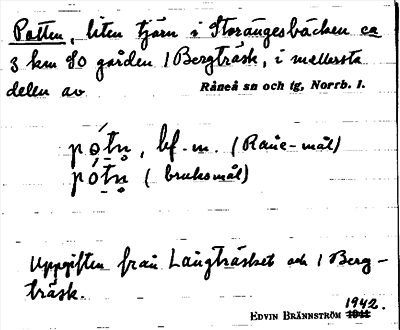 Potten, liten tjärn i Storängesbäcken ca
3 km SO gården 1 Bergträsk, i mellersta
delen av Råneå sn och tg, Norrb. l.
pó̱tn̥, bf. m. (Råne-mål)
pó̱tn̥ (bruksmål)
Uppgiften från Långträsket och 1 Berg-
träsk.
EDVIN BRÄNNSTRÖM 1942.